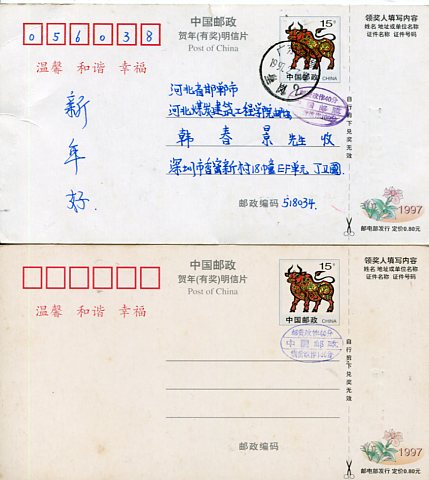 中国邮政
贺年(有奖)明信片
Post of China
15分
中国邮政 CHINA
领奖人填写内容
姓名 地址或单位名称
证件名称 证件号码
056038
温馨 和谐 幸福
新年好
河北省邯郸市
河北煤炭建筑工程学院
韩春景 先生 收
深圳市
518034
邮政编码
中国邮政
自行剪下兑奖无效
1997
邮电部发行 定价0.80元
中国邮政
贺年(有奖)明信片
Post of China
15分
中国邮政 CHINA
领奖人填写内容
姓名 地址或单位名称
证件名称 证件号码
温馨 和谐 幸福
邮资改作40分
中国邮政
自行剪下兑奖无效
邮政编码
1997
邮电部发行 定价0.80元